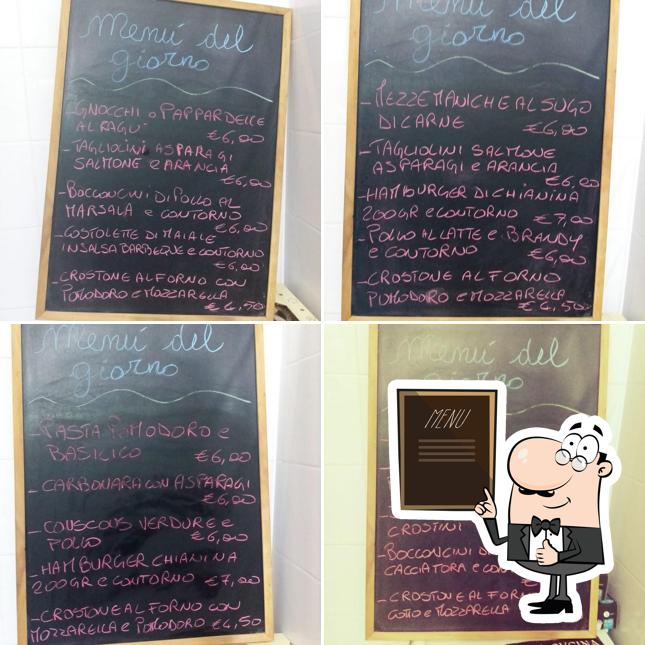 Menú del
giorno
-GNOCCHI o PAPPARDELLE
AL RAGU'
€6,00
-TAGLIOLINI ASPARAGI
SALMONE e ARANCIA
€6,00
-BOCCONCINI DI POLLO AL
MARSALA e CONTORNO
€6,00
-COSTOLETTE DI MAIALE
IN SALSA BARBEQUE e CONTORNO
€6,00
-CROSTONE AL FORNO CON
POMODORO e MOZZARELLA
€4,50
Menú del
giorno
-MEZZE MANICHE AL SUGO
DI CARNE €6,00
-TAGLIOLINI SALMONE
ASPARAGI e ARANCIA
€6,00
-HAMBURGER DI CHIANINA
200GR e CONTORNO €7,00
-POLLO AL LATTE e BRANDY
e CONTORNO €6,00
-CROSTONE AL FORNO
POMODORO e MOZZARELLA
€4,50
Menú del
giorno
-PASTA POMODORO e
BASILICO €6,00
-CARBONARA CON ASPARAGI
€6,00
-COUSCOUS VERDURE e
POLLO €6,00
-HAMBURGER CHIANINA
200GR e CONTORNO €7,00
-CROSTONE AL FORNO CON
MOZZARELLA e POMODORO €4,50
Menú del
giorno
MENU
CROSTINI
BOCCONCINI
CACCIATORA e
-CROSTONE AL
COTTO e MOZZARELLA
CUCINA